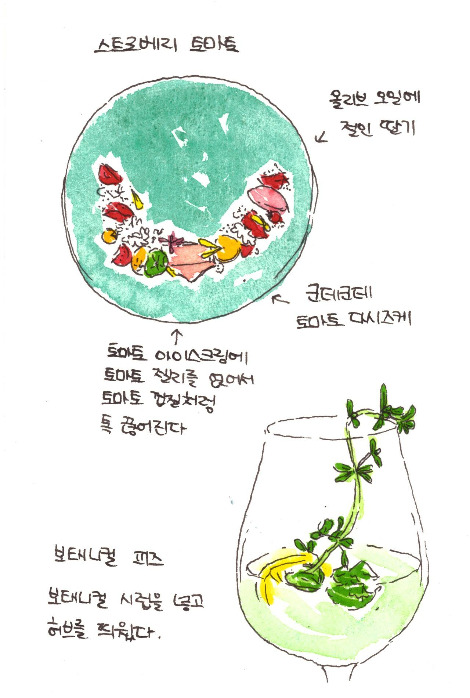 스트로베리 토마토
올리브 오일에
절인 딸기
군데군데
토마토 다시즈케
토마토 아이스크림에
토마토 젤리를 얹어서
토마토 껍질처럼
톡 끊어진다
보태니컬 피즈
보태니컬 시럽을 넣고
허브를 띄웠다.